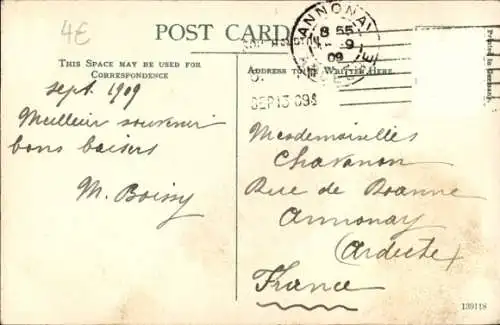 4€
POST CARD
THIS SPACE MAY BE USED FOR
CORRESPONDENCE
ADDRESS TO BE WRITTEN HERE.
ANNONAY
8 55
9
09
SEP 13 09
Printed in Germany.
Sept. 1909
Meilleur souvenir
bons baisers
M. Boissy
Mesdemoiselles
Chavanon
Rue de Roanne
Annonay
(Ardèche)
France
139118